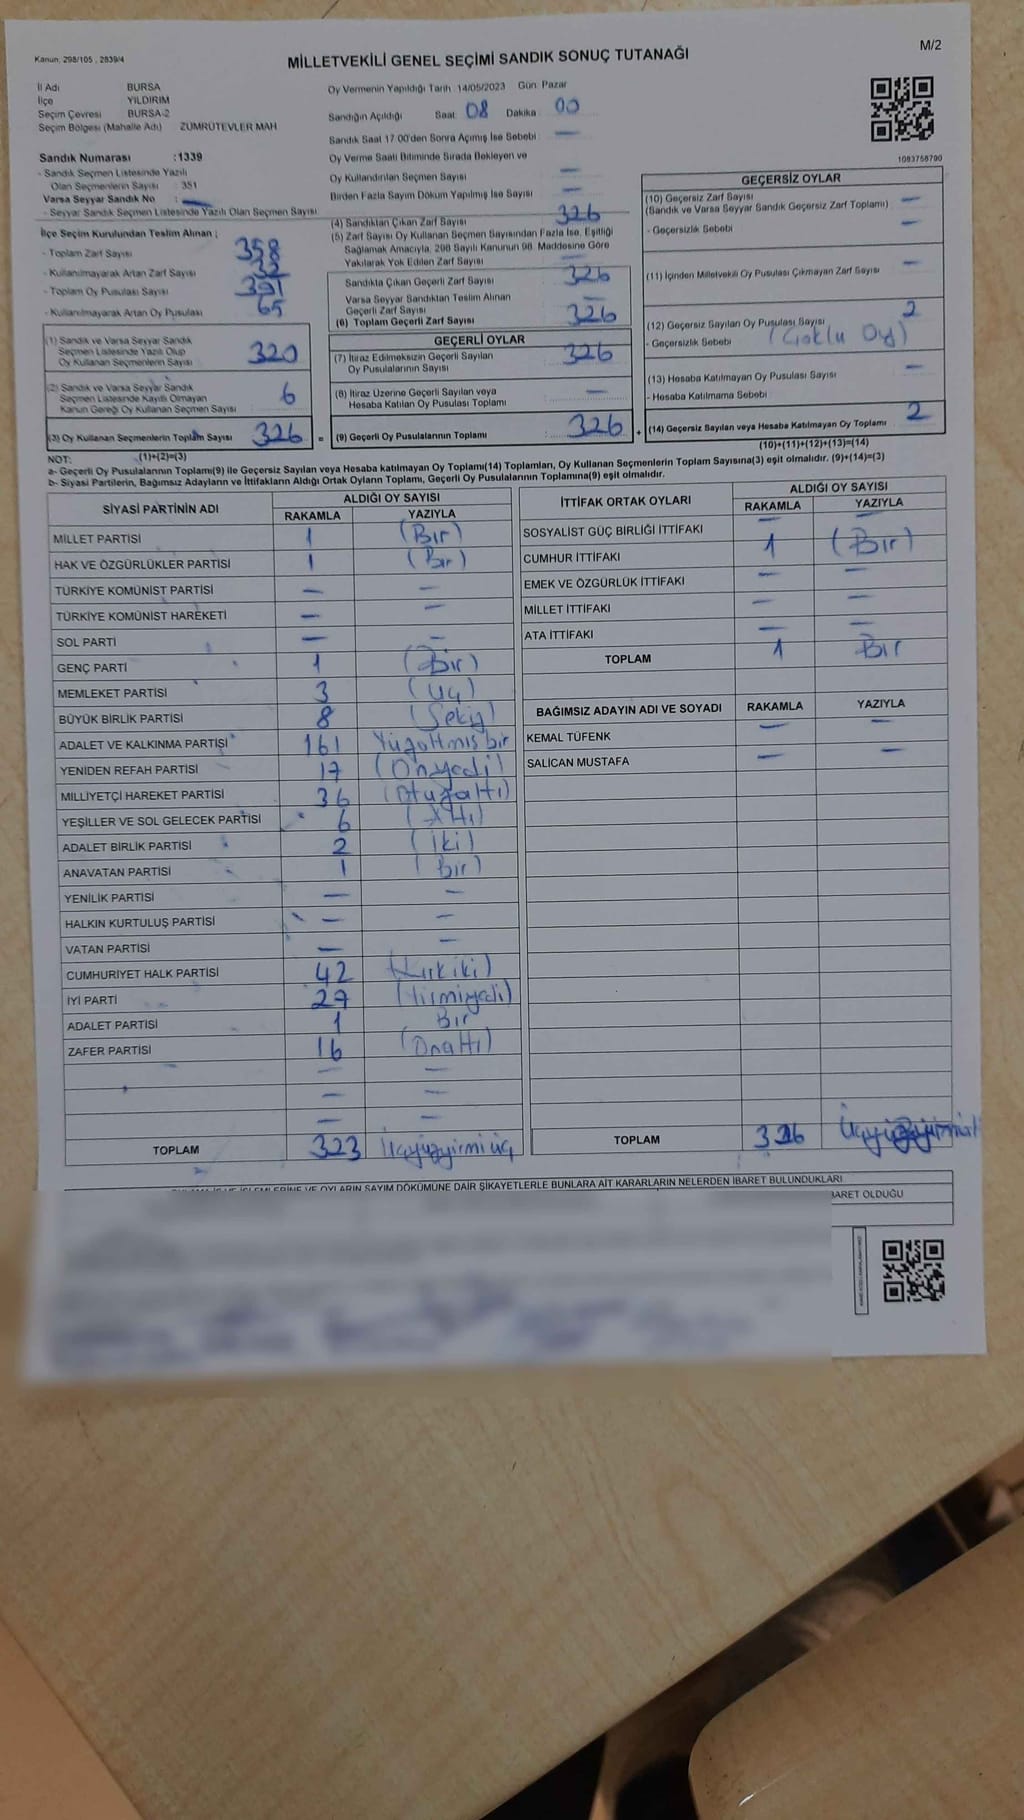 Kanun: 298/105 , 2839/4
MİLLETVEKİLİ GENEL SEÇİMİ SANDIK SONUÇ TUTANAĞI
M/2
İl Adı BURSA
İlçe YILDIRIM
Seçim Çevresi BURSA-2
Seçim Bölgesi (Mahalle Adı) ZÜMRÜTEVLER MAH
Sandık Numarası :1339
- Sandık Seçmen Listesinde Yazılı
Olan Seçmenlerin Sayısı : 351
Varsa Seyyar Sandık No : —
- Seyyar Sandık Seçmen Listesinde Yazılı Olan Seçmen Sayısı
İlçe Seçim Kurulundan Teslim Alınan ;
- Toplam Zarf Sayısı 358
- Kullanılmayarak Artan Zarf Sayısı 32
- Toplam Oy Pusulası Sayısı 391
- Kullanılmayarak Artan Oy Pusulası 65
(1) Sandık ve Varsa Seyyar Sandık
Seçmen Listesinde Yazılı Olup
Oy Kullanan Seçmenlerin Sayısı 320
(2) Sandık ve Varsa Seyyar Sandık
Seçmen Listesinde Kayıtlı Olmayan
Kanun Gereği Oy Kullanan Seçmen Sayısı 6
(3) Oy Kullanan Seçmenlerin Toplam Sayısı 326 =
(1)+(2)=(3)
Oy Vermenin Yapıldığı Tarih 14/05/2023 Gün: Pazar
Sandığın Açıldığı Saat: 08 Dakika 00
Sandık Saat 17:00'den Sonra Açımış İse Sebebi —
Oy Verme Saati Bitiminde Sırada Bekleyen ve
Oy Kullandırılan Seçmen Sayısı —
Birden Fazla Sayım Döküm Yapılmış İse Sayısı —
(4) Sandıktan Çıkan Zarf Sayısı 326
(5) Zarf Sayısı Oy Kullanan Seçmen Sayısından Fazla İse, Eşitliği
Sağlamak Amacıyla, 298 Sayılı Kanunun 98. Maddesine Göre
Yakılarak Yok Edilen Zarf Sayısı —
Sandıkta Çıkan Geçerli Zarf Sayısı 326
Varsa Seyyar Sandıktan Teslim Alınan
Geçerli Zarf Sayısı —
(6) Toplam Geçerli Zarf Sayısı 326
GEÇERLİ OYLAR
(7) İtiraz Edilmeksizin Geçerli Sayılan
Oy Pusulalarının Sayısı 326
(8) İtiraz Üzerine Geçerli Sayılan veya
Hesaba Katılan Oy Pusulası Toplamı —
(9) Geçerli Oy Pusulalarının Toplamı : 326 +
1083758790
GEÇERSİZ OYLAR
(10) Geçersiz Zarf Sayısı
(Sandık ve Varsa Seyyar Sandık Geçersiz Zarf Toplamı) —
- Geçersizlik Sebebi —
(11) İçinden Milletvekili Oy Pusulası Çıkmayan Zarf Sayısı —
(12) Geçersiz Sayılan Oy Pusulası Sayısı 2
- Geçersizlik Sebebi (Çoklu Oy)
(13) Hesaba Katılmayan Oy Pusulası Sayısı —
- Hesaba Katılmama Sebebi
(14) Geçersiz Sayılan veya Hesaba Katılmayan Oy Toplamı 2
(10)+(11)+(12)+(13)=(14)
NOT:
a- Geçerli Oy Pusulalarının Toplamı(9) ile Geçersiz Sayılan veya Hesaba katılmayan Oy Toplamı(14) Toplamları, Oy Kullanan Seçmenlerin Toplam Sayısına(3) eşit olmalıdır. (9)+(14)=(3)
b- Siyasi Partilerin, Bağımsız Adayların ve İttifakların Aldığı Ortak Oyların Toplamı, Geçerli Oy Pusulalarının Toplamına(9) eşit olmalıdır.
SİYASİ PARTİNİN ADI ALDIĞI OY SAYISI
RAKAMLA YAZIYLA
MİLLET PARTİSİ 1 (Bir)
HAK VE ÖZGÜRLÜKLER PARTİSİ 1 (Bir)
TÜRKİYE KOMÜNİST PARTİSİ — —
TÜRKİYE KOMÜNİST HAREKETİ — —
SOL PARTİ — —
GENÇ PARTİ 1 (Bir)
MEMLEKET PARTİSİ 3 (üç)
BÜYÜK BİRLİK PARTİSİ 8 (Sekiz)
ADALET VE KALKINMA PARTİSİ 161 Yüzaltmış bir
YENİDEN REFAH PARTİSİ 17 (Onyedi)
MİLLİYETÇİ HAREKET PARTİSİ 36 (Otuzaltı)
YEŞİLLER VE SOL GELECEK PARTİSİ 6 (Altı)
ADALET BİRLİK PARTİSİ 2 (İki)
ANAVATAN PARTİSİ 1 (Bir)
YENİLİK PARTİSİ — —
HALKIN KURTULUŞ PARTİSİ — —
VATAN PARTİSİ — —
CUMHURİYET HALK PARTİSİ 42 (Kırkiki)
İYİ PARTİ 27 (Yirmiyedi)
ADALET PARTİSİ 1 Bir
ZAFER PARTİSİ 16 (Onaltı)
— —
— —
— —
TOPLAM 323 üçyüzyirmi üç
İTTİFAK ORTAK OYLARI ALDIĞI OY SAYISI
RAKAMLA YAZIYLA
SOSYALİST GÜÇ BİRLİĞİ İTTİFAKI — —
CUMHUR İTTİFAKI 1 (Bir)
EMEK VE ÖZGÜRLÜK İTTİFAKI — —
MİLLET İTTİFAKI — —
ATA İTTİFAKI — —
TOPLAM 1 Bir
BAĞIMSIZ ADAYIN ADI VE SOYADI RAKAMLA YAZIYLA
KEMAL TÜFENK — —
SALİCAN MUSTAFA — —
TOPLAM 326
İŞLEMLERİNE VE OYLARIN SAYIM DÖKÜMÜNE DAİR ŞİKAYETLERLE BUNLARA AİT KARARLARIN NELERDEN İBARET BULUNDUKLARI
BARET OLDUĞU